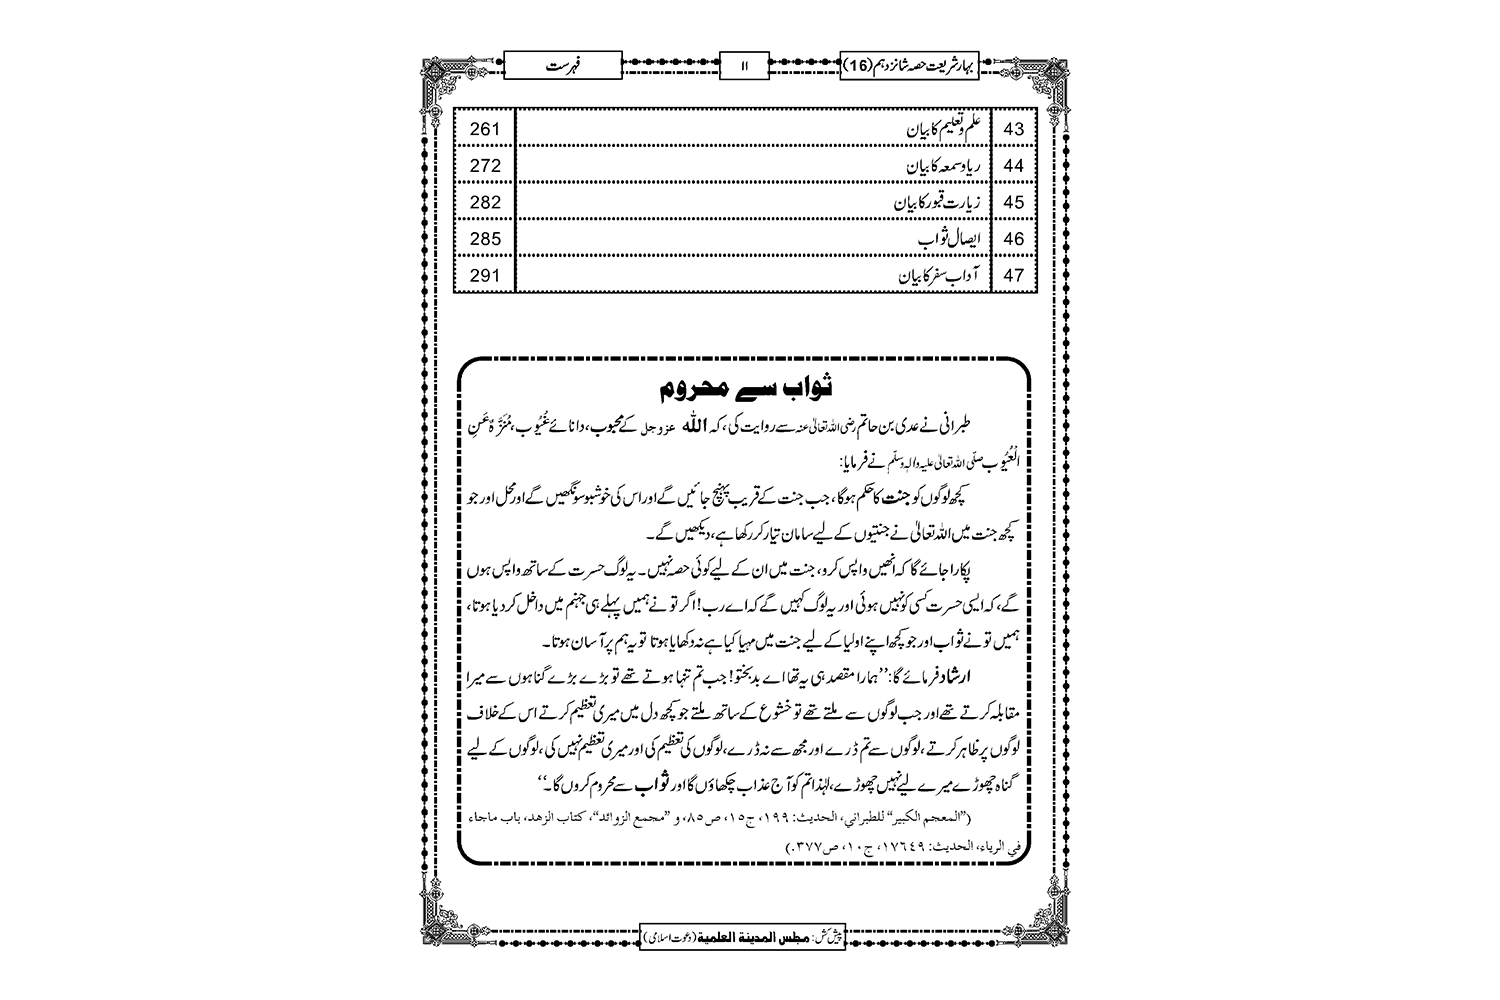 بہارشریعت حصہ شانزدہم (16)
۱۱
فہرست
43 علم و تعلیم کا بیان 261
44 ریا و سمعہ کا بیان 272
45 زیارت قبور کا بیان 282
46 ایصال ثواب 285
47 آداب سفر کا بیان 291
ثواب سے محروم
طبرانی نے عدی بن حاتم رضی اللہ تعالیٰ عنہ سے روایت کی، کہ اللہ عزوجل کے محبوب، دانائے غُیُوب، مُنَزَّہٌ عَنِ
الْعُیُوب صلَّی اللہ تعالیٰ علیہ والہٖ وسلَّم نے فرمایا:
کچھ لوگوں کو جنت کا حکم ہوگا، جب جنت کے قریب پہنچ جائیں گے اور اس کی خوشبو سونگھیں گے اور محل اور جو
کچھ جنت میں اللہ تعالیٰ نے جنتیوں کے لیے سامان تیار کر رکھا ہے، دیکھیں گے۔
پکارا جائے گا کہ انھیں واپس کرو، جنت میں ان کے لیے کوئی حصہ نہیں۔ یہ لوگ حسرت کے ساتھ واپس ہوں
گے، کہ ایسی حسرت کسی کو نہیں ہوئی اور یہ لوگ کہیں گے کہ اے رب! اگر تو نے ہمیں پہلے ہی جہنم میں داخل کر دیا ہوتا،
ہمیں تو نے ثواب اور جو کچھ اپنے اولیا کے لیے جنت میں مہیا کیا ہے نہ دکھایا ہوتا تو یہ ہم پر آسان ہوتا۔
ارشاد فرمائے گا: ’’ہمارا مقصد ہی یہ تھا اے بدبختو! جب تم تنہا ہوتے تھے تو بڑے بڑے گناہوں سے میرا
مقابلہ کرتے تھے اور جب لوگوں سے ملتے تھے تو خشوع کے ساتھ ملتے جو کچھ دل میں میری تعظیم کرتے اس کے خلاف
لوگوں پر ظاہر کرتے، لوگوں سے تم ڈرے اور مجھ سے نہ ڈرے، لوگوں کی تعظیم کی اور میری تعظیم نہیں کی، لوگوں کے لیے
گناہ چھوڑے میرے لیے نہیں چھوڑے، لہٰذا تم کو آج عذاب چکھاؤں گا اور ثواب سے محروم کروں گا۔‘‘
(”المعجم الکبیر“ للطبراني، الحدیث: ۱۹۹، ج۱۵، ص۸۵، و ”مجمع الزوائد“، کتاب الزھد، باب ماجاء
في الریاء، الحدیث: ۱۷٦٤۹، ج۱۰، ص۳۷۷.)
پیش کش: مجلس المدینۃ العلمیۃ (دعوت اسلامی)